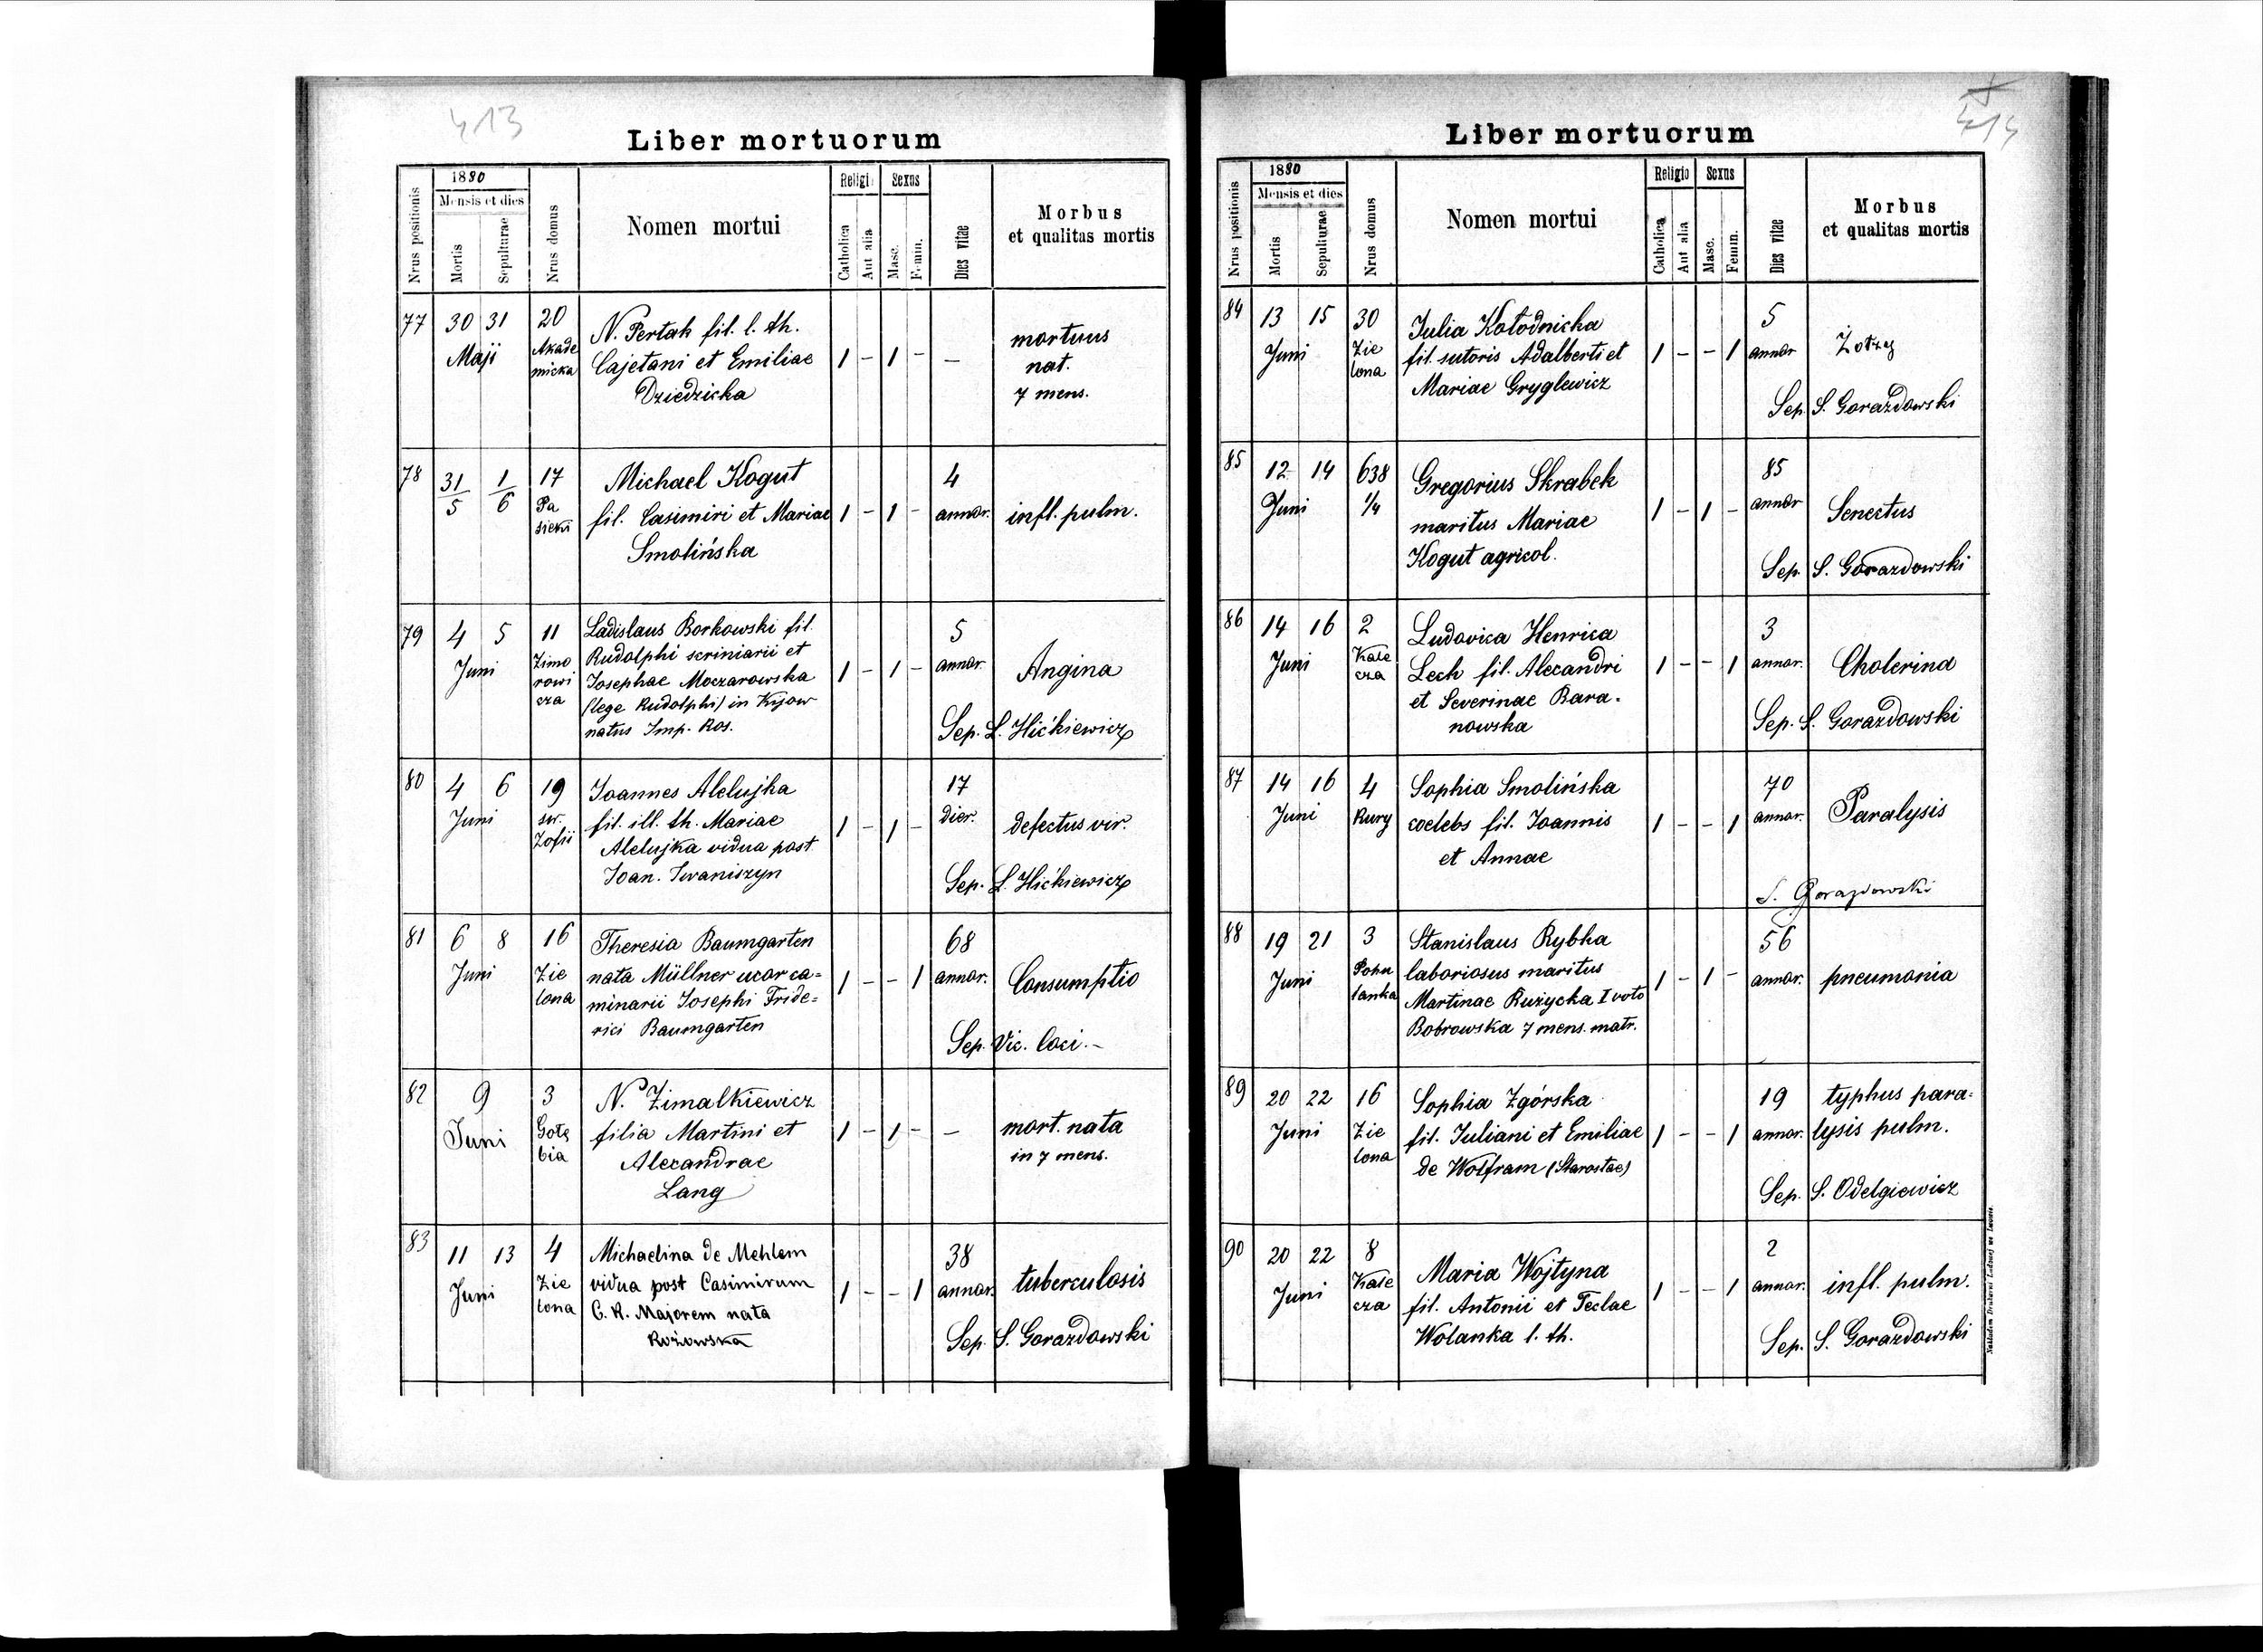 413
Liber mortuorum
Nrus positionis
1880
Mensis et dies
Mortis
Sepulturae
Nrus domus
Nomen mortui
Religi
Catholica
Aut alia
Sexus
Masc.
Femin.
Dies vitae
Morbus
et qualitas mortis
77 30 31 20 N. Pertak fil. l. th. mortuus
Maji Akade Cajetani et Emiliae 1 - 1 - - nat.
micka Dziedzicka 7 mens.
78 31/5 1/6 17 Michael Kogut 4
Pa fil. Casimiri et Mariae 1 - 1 - annor. infl. pulm.
sieki Smolińska
79 4 5 11 Ladislaus Borkowski fil. 5
Juni Zimo Rudolphi scriniarii et annor. Angina
rowi Josephae Moczarowska 1 - 1 -
cza (lege Rudolphi) in Kijow
natus Imp. Ros. Sep. L. Hićkiewicz
80 4 6 19 Joannes Alelujka 17
Juni sw. fil. ill. th. Mariae 1 - 1 - dier. defectus vir.
Zofii Alelujka vidua post
Joan. Iwaniszyn Sep. L. Hićkiewicz
81 6 8 16 Theresia Baumgarten 68
Juni Zie nata Müllner uxor ca= 1 - - 1 annor. Consumptio
lona minarii Josephi Fride=
rici Baumgarten Sep. Vic. loci. -
82 9 3 N. Zimalkiewicz
Juni Gołę filia Martini et 1 - 1 - - mort. nata
bia Alexandrae in 7 mens.
Lang
83 11 13 4 Michaelina de Mehlem 38
Juni Zie vidua post Casimirum 1 - - 1 annor. tuberculosis
lona C. R. Majorem nata
Rożowska Sep. S. Gorazdowski
414
Liber mortuorum
Nrus positionis
1880
Mensis et dies
Mortis
Sepulturae
Nrus domus
Nomen mortui
Religio
Catholica
Aut alia
Sexus
Masc.
Femin.
Dies vitae
Morbus
et qualitas mortis
84 13 15 30 Julia Kołodnicka 5
Juni Zie fil. sutoris Adalberti et 1 - - 1 annor
lona Mariae Gryglewicz
Sep. S. Gorazdowski
85 12 14 638 Gregorius Skrabek 85
Juni 1/4 maritus Mariae 1 - 1 - annor Senectus
Kogut agricol. Sep. S. Gorazdowski
86 14 16 2 Ludovica Henrica 3
Juni Kale Lech fil. Alexandri 1 - - 1 annor. Cholerina
cza et Severinae Bara-
nowska Sep. S. Gorazdowski
87 14 16 4 Sophia Smolińska 70
Juni Rury coelebs fil. Joannis 1 - - 1 annor. Paralysis
et Annae
S. Gorazdowski
88 19 21 3 Stanislaus Rybka 56
Juni Pohu laboriosus maritus 1 - 1 - annor. pneumonia
lanka Martinae Rużycka I voto
Bobrowska 7 mens. matr.
89 20 22 16 Sophia Zgórska 19 typhus para=
Juni Zie fil. Juliani et Emiliae 1 - - 1 annor. lysis pulm.
lona de Wolfram (Starostae)
Sep. S. Odelgiewicz
90 20 22 8 Maria Wojtyna 2
Juni Kale fil. Antonii et Teclae 1 - - 1 annor. infl. pulm.
cza Wolanka l. th. Sep. S. Gorazdowski
Nakładem Drukarni Ludowej we Lwowie.